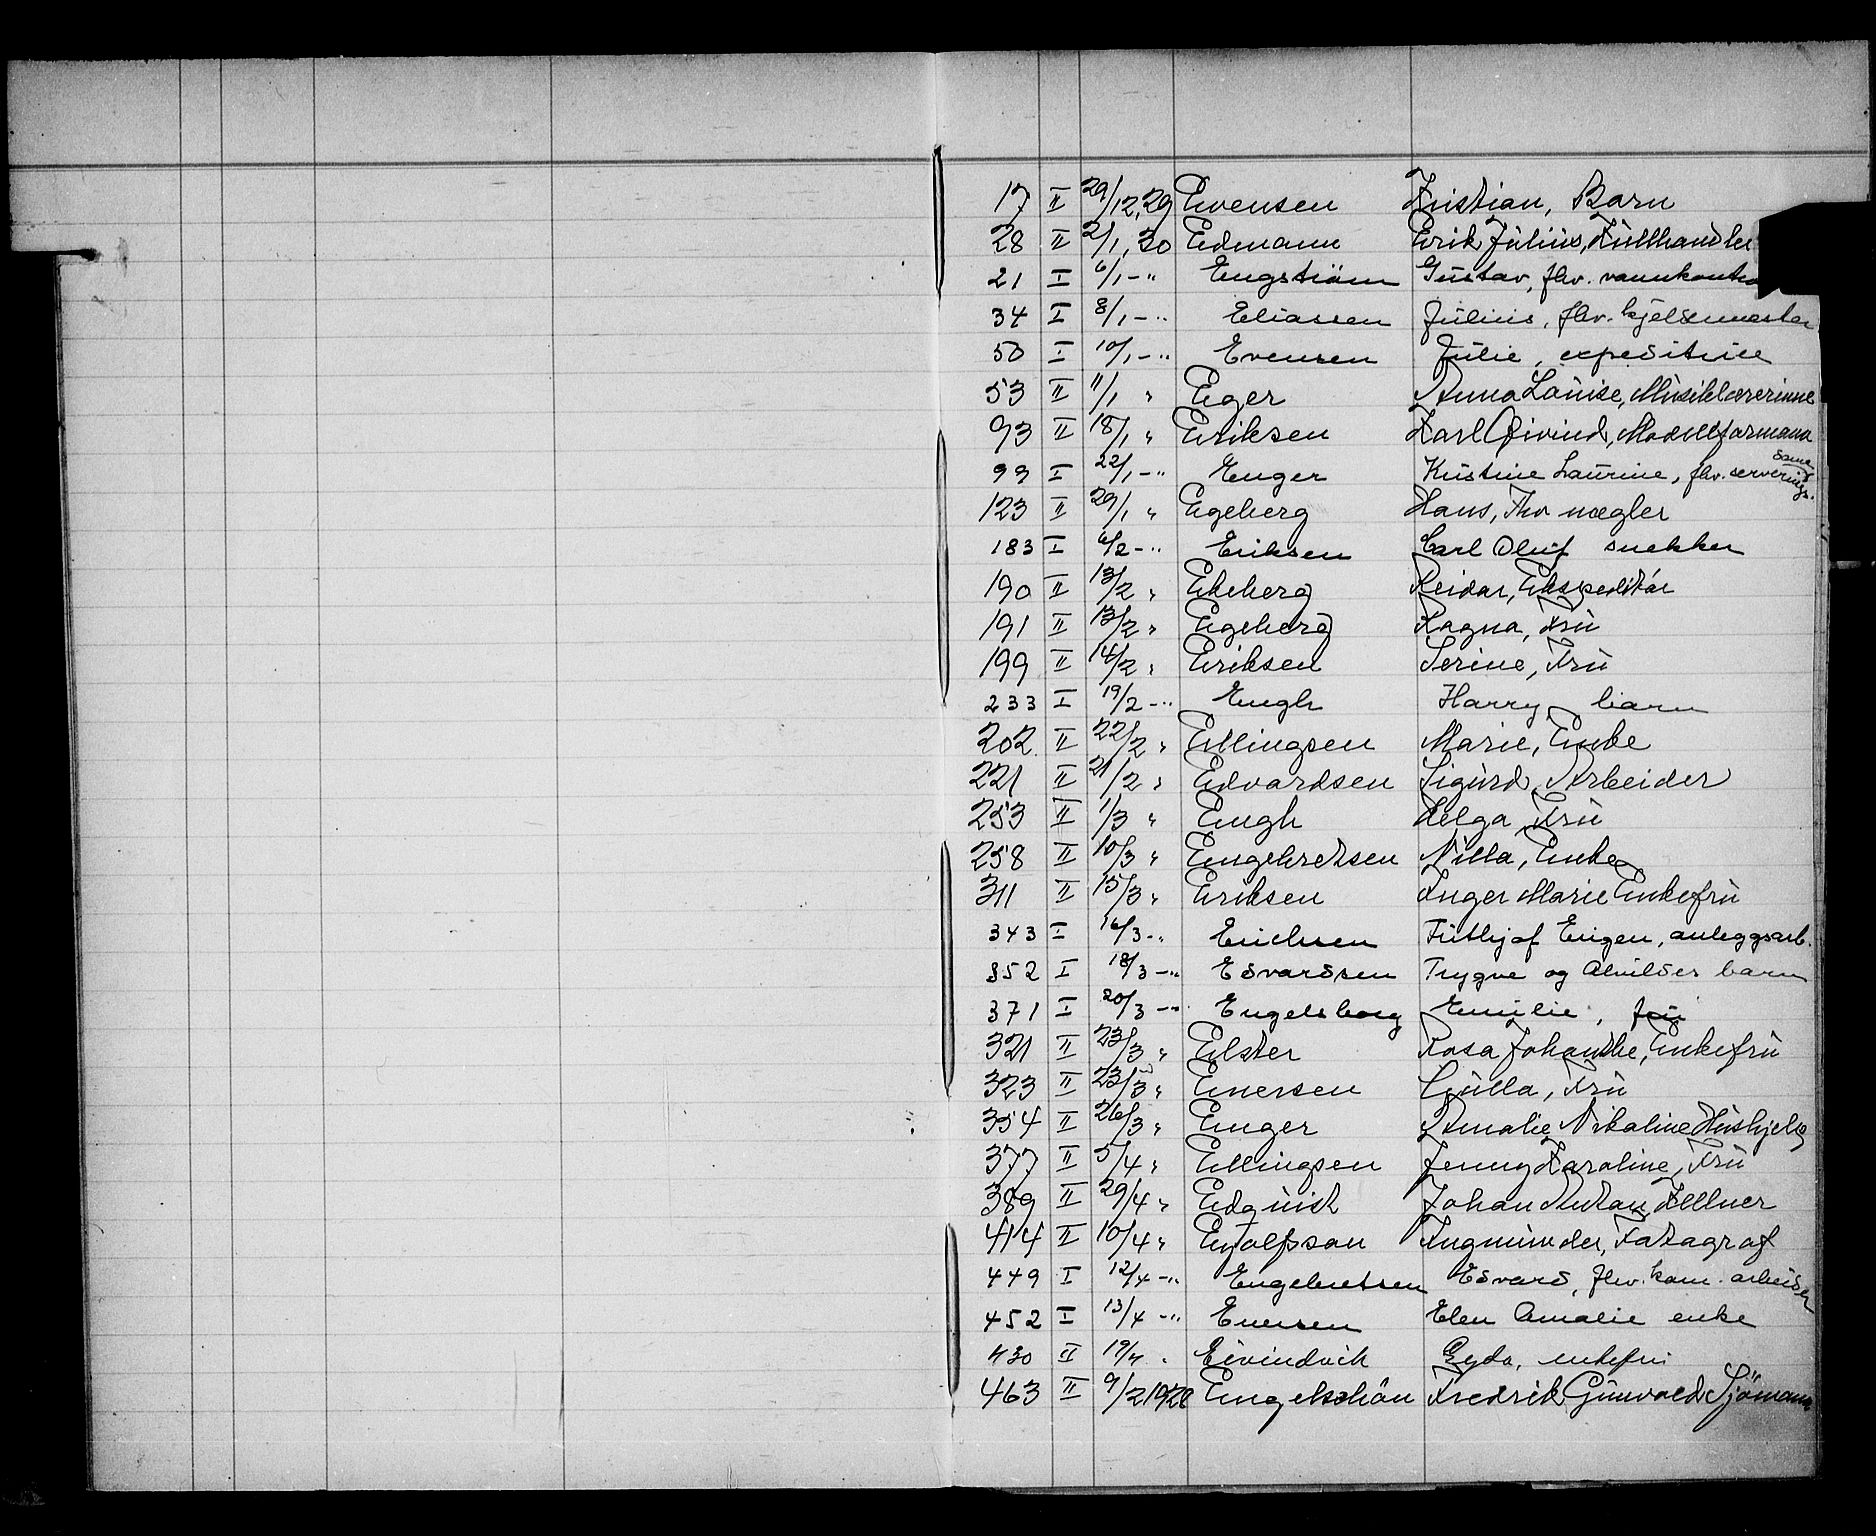 17 II 29/12,29 Evensen Kristian, Barn
28 II 2/1,30 Edmann Erik Julius, Kullhandler
21 I 6/1 -" Engström Gustav, fhv. vannkontr
34 I 8/1 -" Eliassen Julius, fhv. kjelsmester
50 I 10/1 -" Evensen Julie, expeditrice
53 II 11/1 " Eger Anna Louise, Musiklærerinne
93 II 18/1 " Eriksen Karl Øivind, Modellformann
99 I 22/1 -" Enger Kristine Laurine, fhv. serverings.
123 II 29/1 " Egeberg Hans, Fhv mægler
183 I 6/2 -" Eriksen Carl Oluf snekker
190 II 13/2 " Ekeberg Reidar, Ekspeditør
191 II 13/2 " Egeberg Ragna, Fru
199 II 14/2 " Eriksen Serine, Fru
233 I 19/2 -" Engh Harry barn
202 II 22/2 " Ellingsen Marie, Enke
221 II 21/2 " Edvardsen Sigurd, Arbeider
253 II 1/3 " Engh Helga, Fru
258 II 10/3 " Engebretsen Nilla, Enke
311 II 15/3 " Eriksen Inger Marie Enkefru
343 I 16/3 -" Erichsen Fritjof Eugen, anleggsarb.
352 I 18/3 -" Edvardsen Trygve og Alvildes barn
371 I 20/3 -" Engelsborg Emilie, fru
321 II 23/3 " Elster Rosa Johanthe, Enkefru
323 II 23/3 " Enersen Gulla, Fru
354 II 26/3 " Enger Amalie Nikoline Hushjelp
377 II 5/4 " Ellingsen Jenny Karoline, Fru
389 II 29/4 " Edquist Johan Anton, Kellner
414 II 10/4 " Eyjolfson Ingmunder, Fotograf
449 I 12/4 -" Engebretsen Edvard, fhv. kom. arbeider
452 I 13/4 -" Enersen Elen Amalie enke
430 II 19/4 " Eivindvik Gyda, enkefru
463 II 9/2 1928 Engelschøn Fredrik Gunvald Sjömann